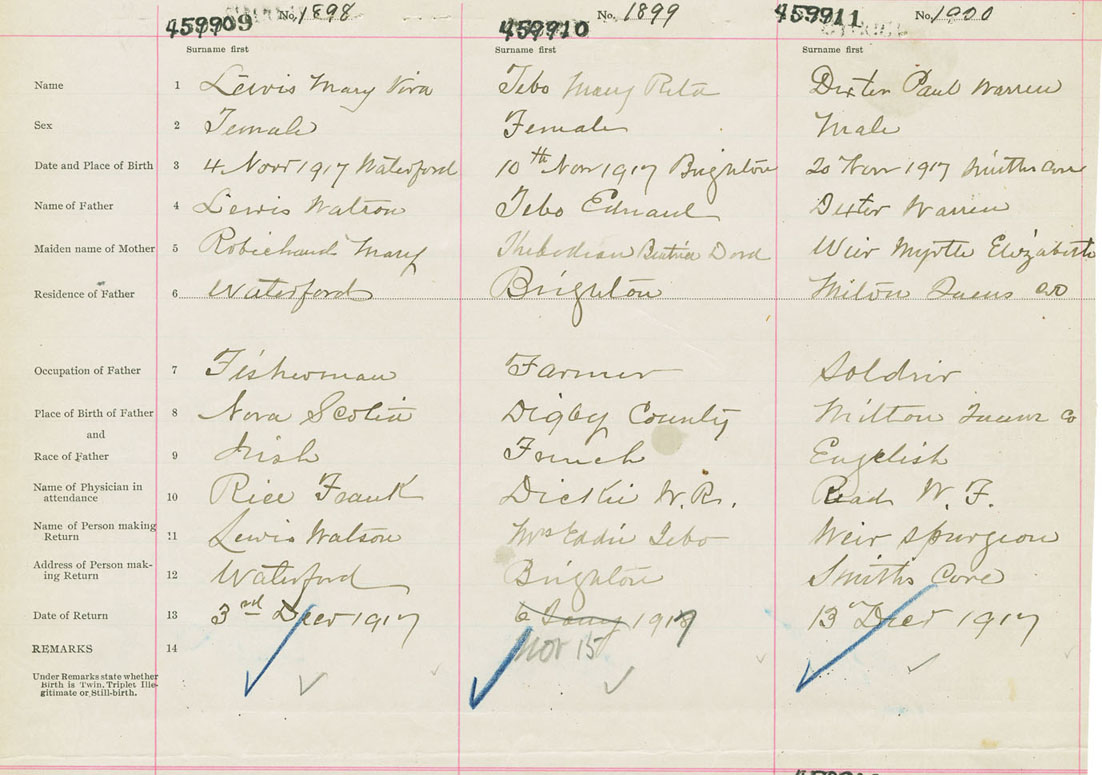 459909 No. 1898 459910 No. 1899 459911 No. 1900
Surname first Surname first Surname first
Name 1 Lewis Mary Tebo Mary Rita Dexter Paul Warren
Sex 2 Female Female Male
Date and Place of Birth 3 4 Novr 1917 Waterford 10th Nov 1917 Brighton 20 Novr 1917 Smiths Cove
Name of Father 4 Lewis Watson Tebo Edward Dexter Warren
Maiden name of Mother 5 Robichaud Mary Beatrice Weir Myrtle Elizabeth
Residence of Father 6 Waterford Brighton Milton Queens Co
Occupation of Father 7 Fisherman Farmer Soldier
Place of Birth of Father 8 Nova Scotia Digby County Milton Queens Co
and
Race of Father 9 Irish French English
Name of Physician in attendance 10 Rice Frank Dickie W. R. Read W. F.
Name of Person making Return 11 Lewis Watson Mrs Eddie Tebo Weir Spurgeon
Address of Person making Return 12 Waterford Brighton Smith's Cove
Date of Return 13 3rd Decr 1917 6 Jany 1917 13th Decr 1917
REMARKS 14 Nov 15
Under Remarks state whether
Birth is Twin, Triplet Ille-
gitimate or Still-birth.